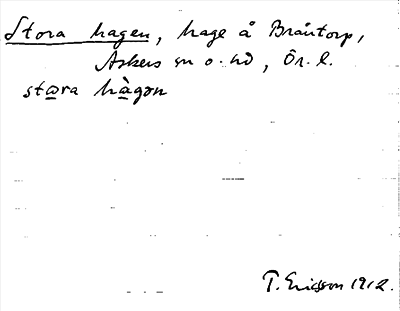 Stora hagen, hage å Bråntorp,
Askers sn o. hd, Ör. l.
stora hàgən
T. Ericsson 1912.